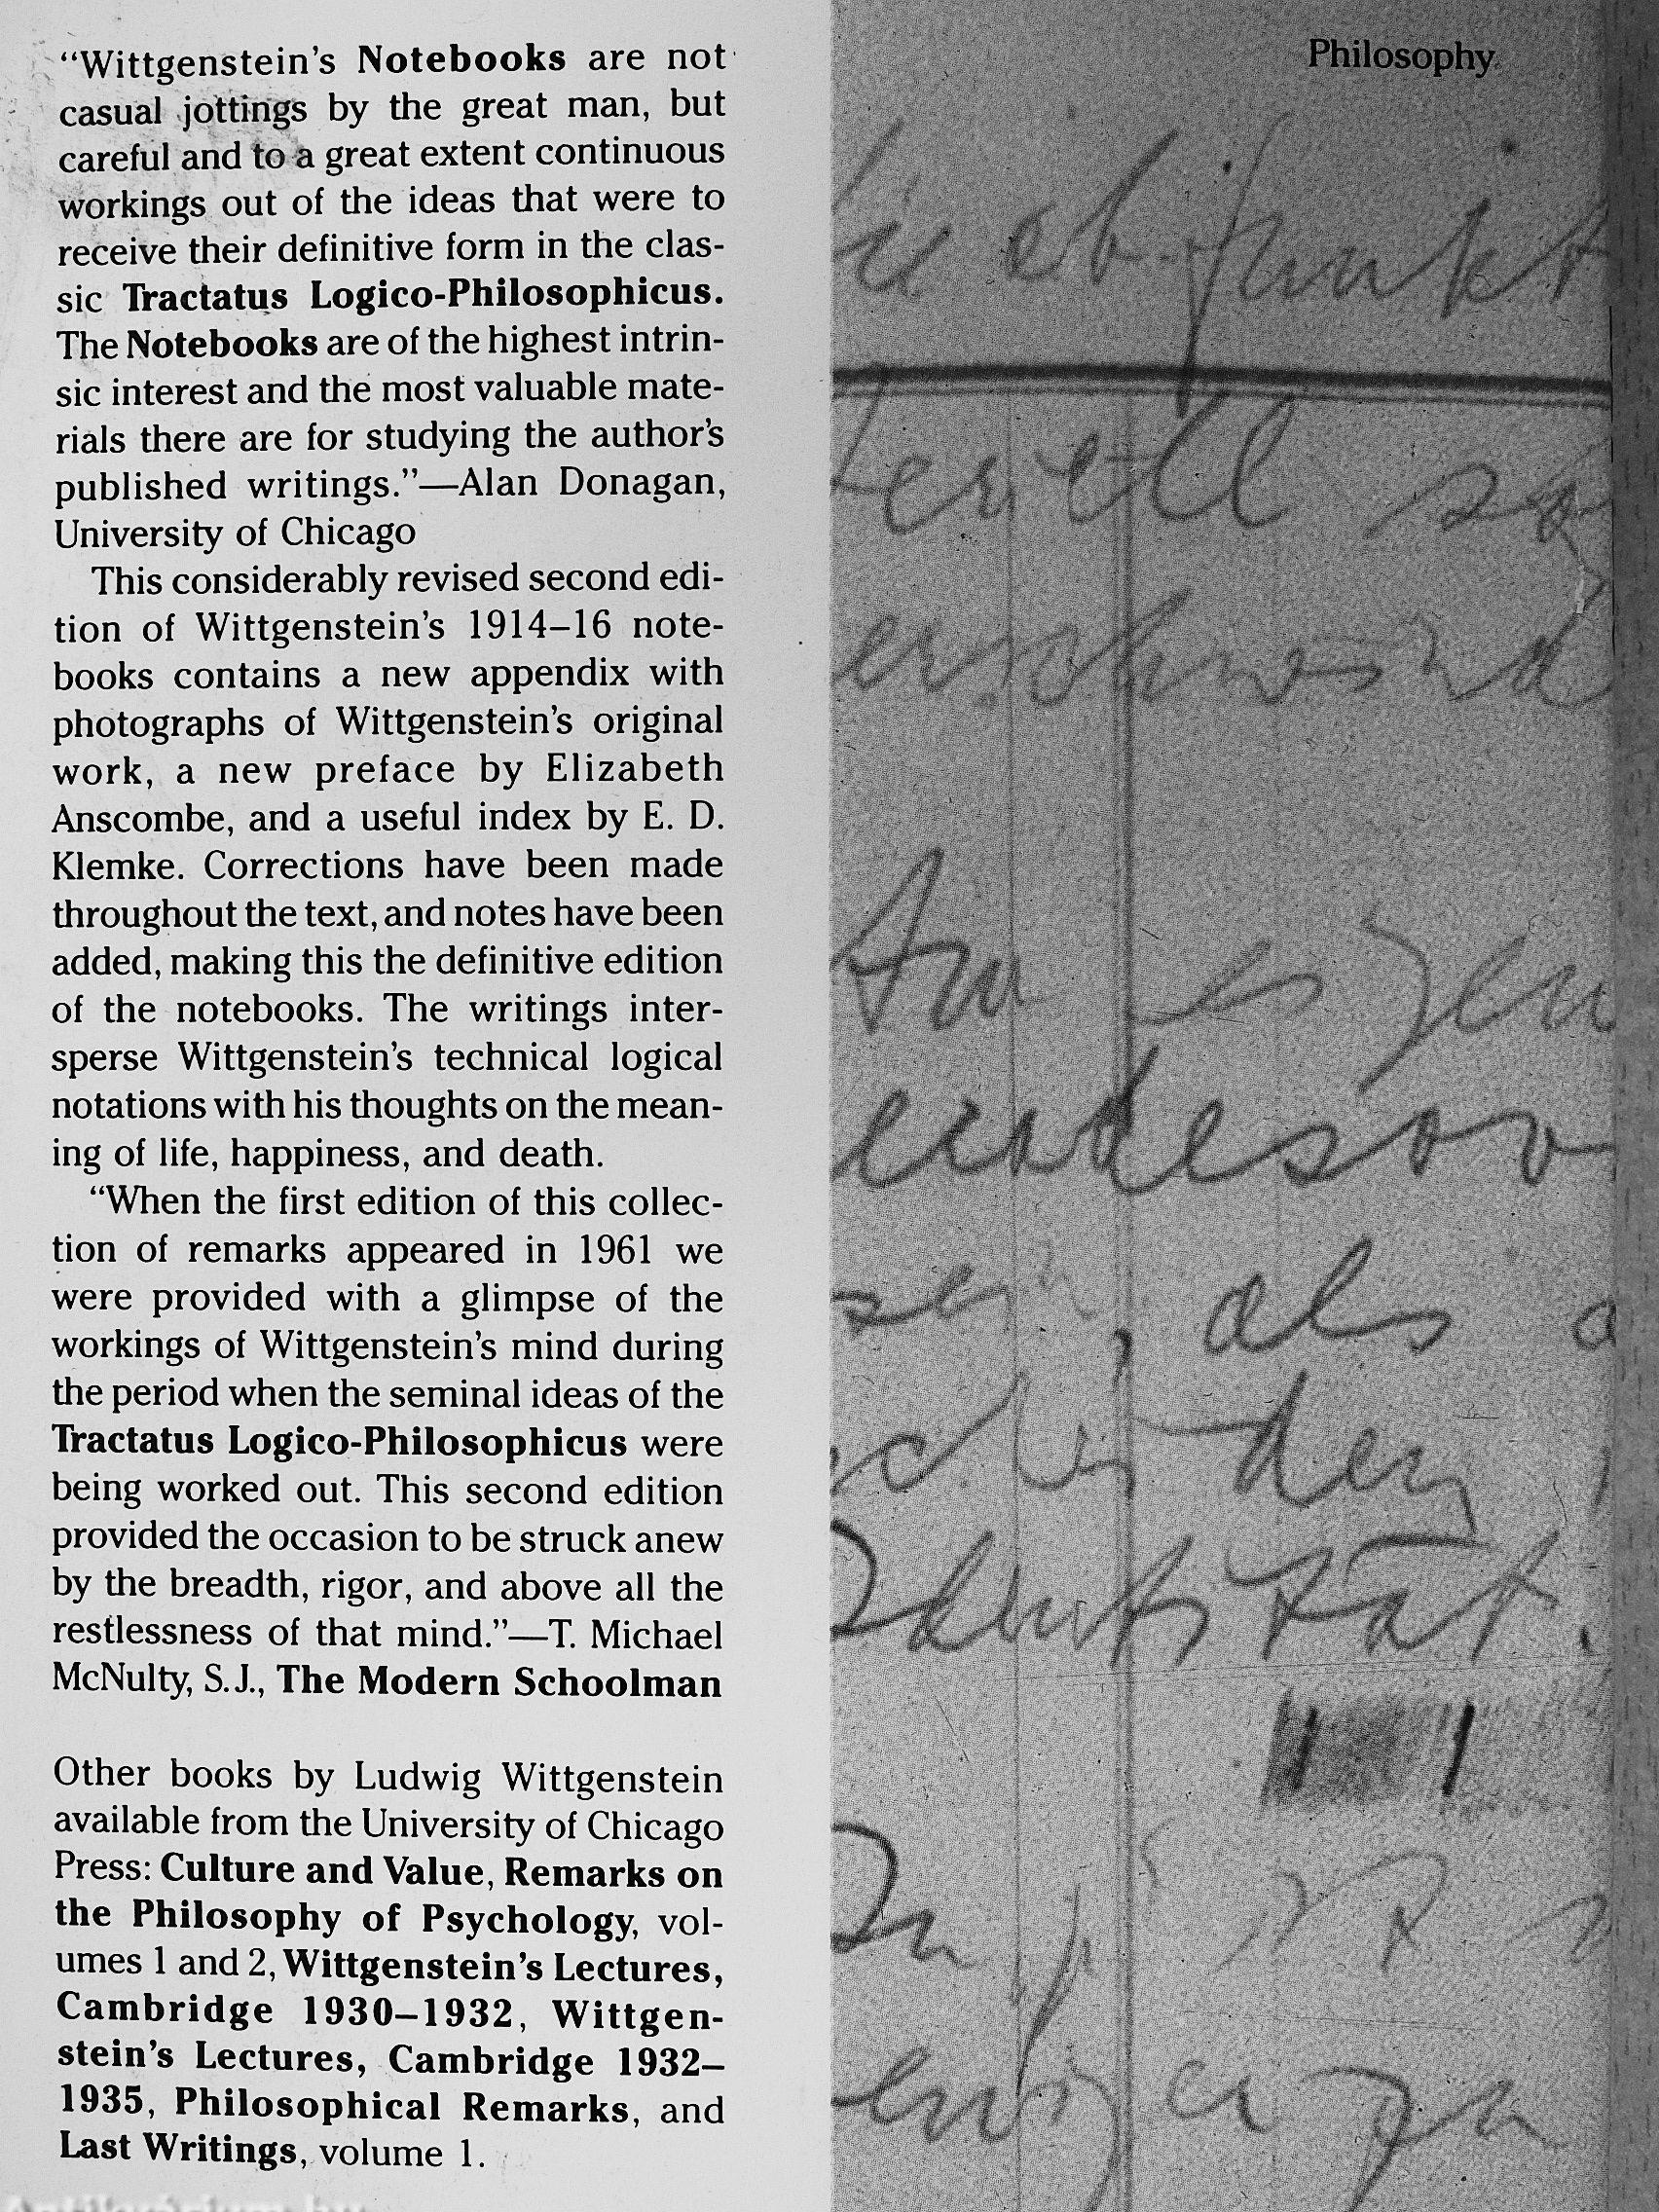 “Wittgenstein’s Notebooks are not
casual jottings by the great man, but
careful and to a great extent continuous
workings out of the ideas that were to
receive their definitive form in the clas-
sic Tractatus Logico-Philosophicus.
The Notebooks are of the highest intrin-
sic interest and the most valuable mate-
rials there are for studying the author’s
published writings.”—Alan Donagan,
University of Chicago
This considerably revised second edi-
tion of Wittgenstein’s 1914–16 note-
books contains a new appendix with
photographs of Wittgenstein’s original
work, a new preface by Elizabeth
Anscombe, and a useful index by E. D.
Klemke. Corrections have been made
throughout the text, and notes have been
added, making this the definitive edition
of the notebooks. The writings inter-
sperse Wittgenstein’s technical logical
notations with his thoughts on the mean-
ing of life, happiness, and death.
“When the first edition of this collec-
tion of remarks appeared in 1961 we
were provided with a glimpse of the
workings of Wittgenstein’s mind during
the period when the seminal ideas of the
Tractatus Logico-Philosophicus were
being worked out. This second edition
provided the occasion to be struck anew
by the breadth, rigor, and above all the
restlessness of that mind.”—T. Michael
McNulty, S.J., The Modern Schoolman
Other books by Ludwig Wittgenstein
available from the University of Chicago
Press: Culture and Value, Remarks on
the Philosophy of Psychology, vol-
umes 1 and 2, Wittgenstein’s Lectures,
Cambridge 1930–1932, Wittgen-
stein’s Lectures, Cambridge 1932–
1935, Philosophical Remarks, and
Last Writings, volume 1.
Philosophy
als
den